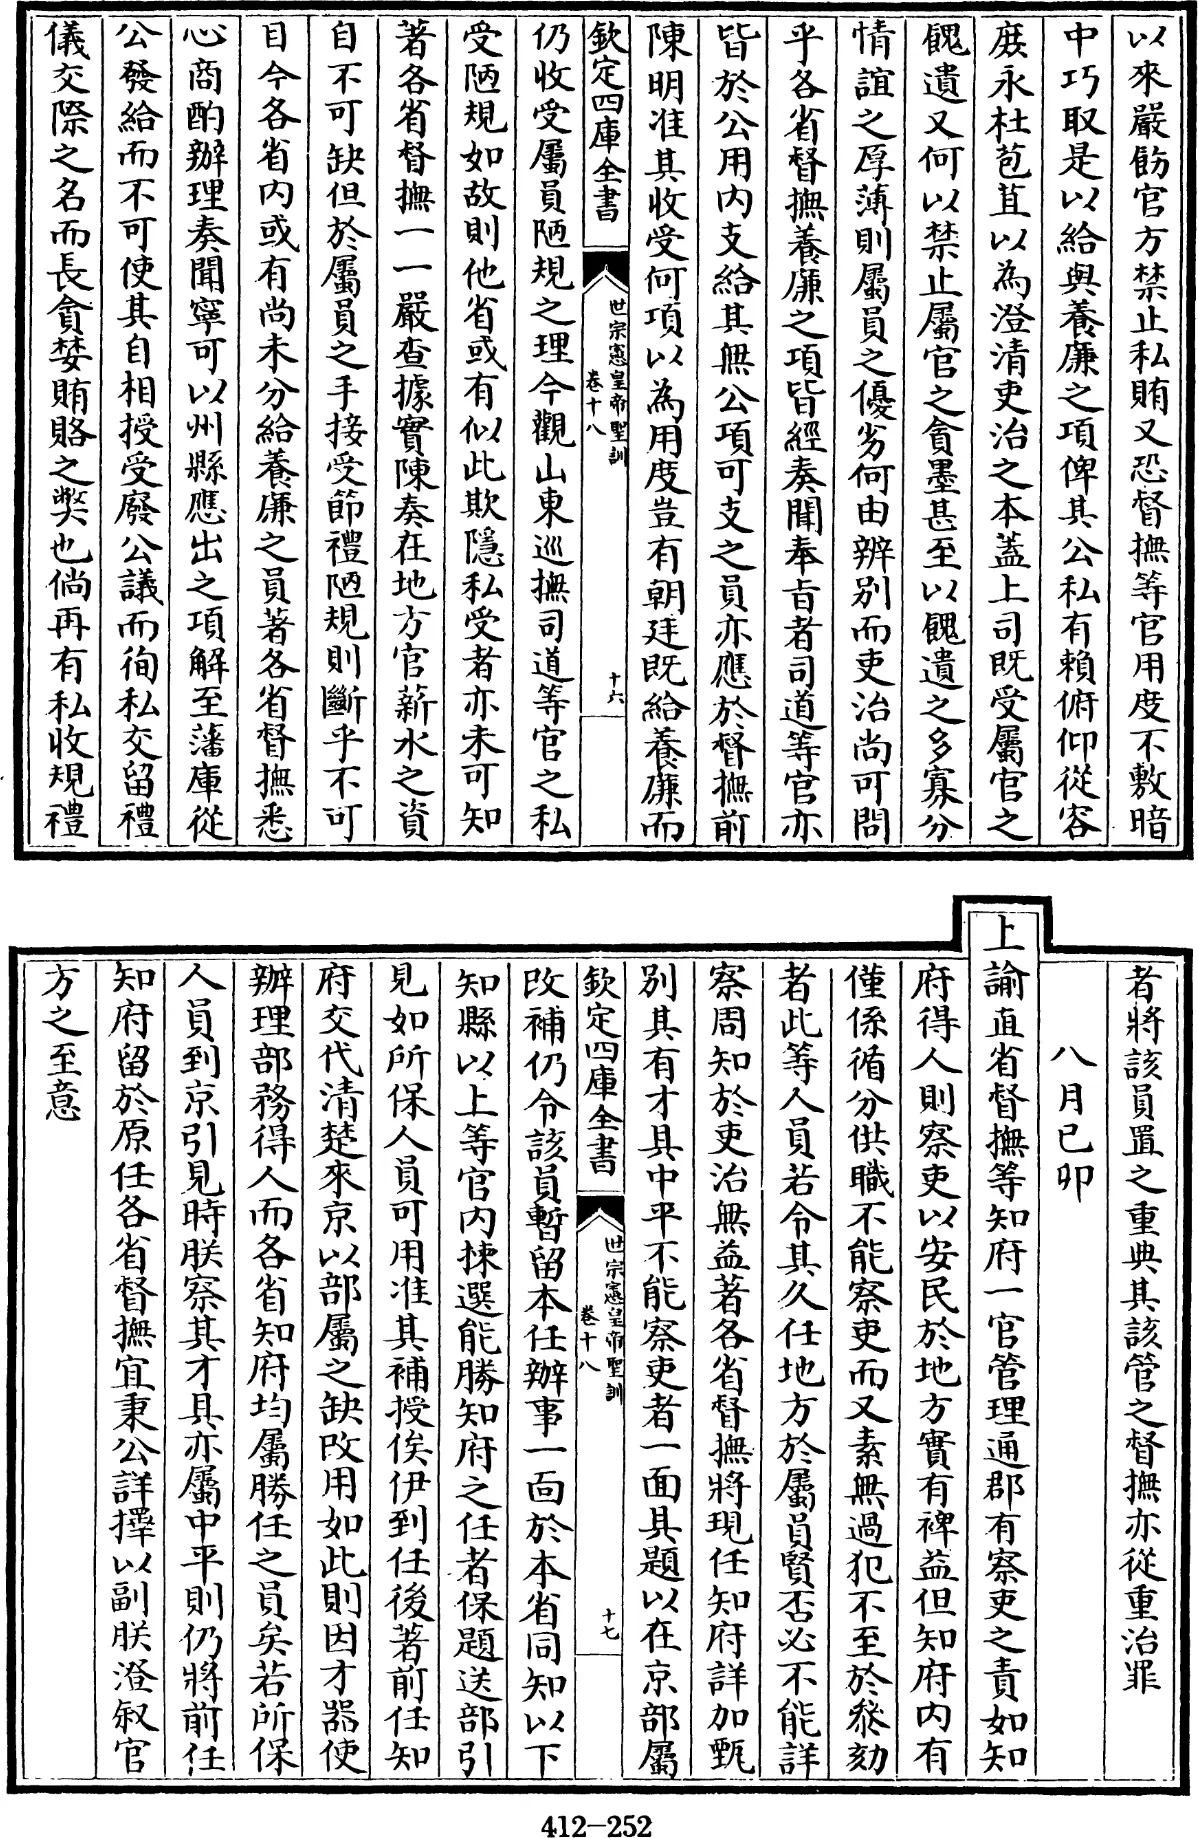 以來嚴飭官方禁止私賄又恐督撫等官用度不敷暗
中巧取是以給與養廉之項俾其公私有賴俯仰從容
庶永杜苞苴以為澄清吏治之本葢上司既受屬官之
餽遺又何以禁止屬官之貪墨甚至以餽遺之多寡分
情誼之厚薄則屬員之優劣何由辨别而吏治尚可問
乎各省督撫養廉之項皆經奏聞奉旨者司道等官亦
皆於公用内支給其無公項可支之員亦應於督撫前
陳明准其收受何項以為用度豈有朝廷既給養廉而
欽定四庫全書
世宗憲皇帝聖訓
卷十八
十六
仍收受屬員陋規之理今觀山東巡撫司道等官之私
受陋規如故則他省或有似此欺隱私受者亦未可知
著各省督撫一一嚴查據實陳奏在地方官薪水之資
自不可缺但於屬員之手接受節禮陋規則斷乎不可
目今各省内或有尚未分給養廉之員著各省督撫悉
心商酌辦理奏聞寧可以州縣應出之項解至藩庫從
公發給而不可使其自相授受廢公議而徇私交留禮
儀交際之名而長貪婪賄賂之弊也倘再有私收規禮
者將該員置之重典其該管之督撫亦從重治罪
八月己卯
上諭直省督撫等知府一官管理通郡有察吏之責如知
府得人則察吏以安民於地方實有裨益但知府内有
僅係循分供職不能察吏而又素無過犯不至於叅劾
者此等人員若令其久任地方於屬員賢否必不能詳
察周知於吏治無益著各省督撫將現任知府詳加甄
别其有才具中平不能察吏者一面具題以在京部屬
欽定四庫全書
世宗憲皇帝聖訓
卷十八
十七
改補仍令該員暫留本任辦事一面於本省同知以下
知縣以上等官内揀選能勝知府之任者保題送部引
見如所保人員可用准其補授俟伊到任後著前任知
府交代清楚來京以部屬之缺改用如此則因才器使
辦理部務得人而各省知府均屬勝任之員矣若所保
人員到京引見時朕察其才具亦屬中平則仍將前任
知府留於原任各省督撫宜秉公詳擇以副朕澄叙官
方之至意
412-252